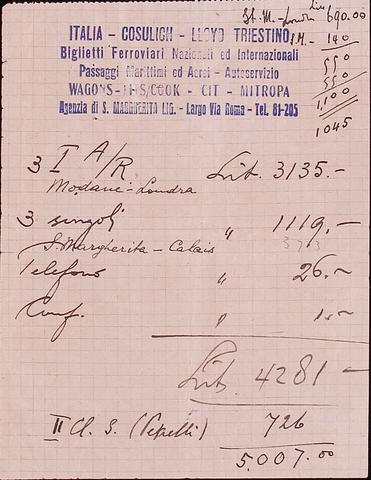 St. M. - Londra Lire 690.00
S.M. - 140
550
550
1,100
1045
ITALIA - COSULICH - LLOYD TRIESTINO
Biglietti Ferroviari Nazionali ed Internazionali
Passaggi Marittimi ed Aerei - Autoservizio
WAGONS-LITS/COOK - CIT - MITROPA
Agenzia di S. MARGHERITA LIG. - Largo Via Roma - Tel. 81-205
3 I A/R Lit. 3135.-
Modane-Londra
3 singoli " 1119,-
S. Margherita - Calais 3713
Telefono " 26.-
Conf. " 1.-
Lit. 4281-
II Cl. S. 726
5.007.00